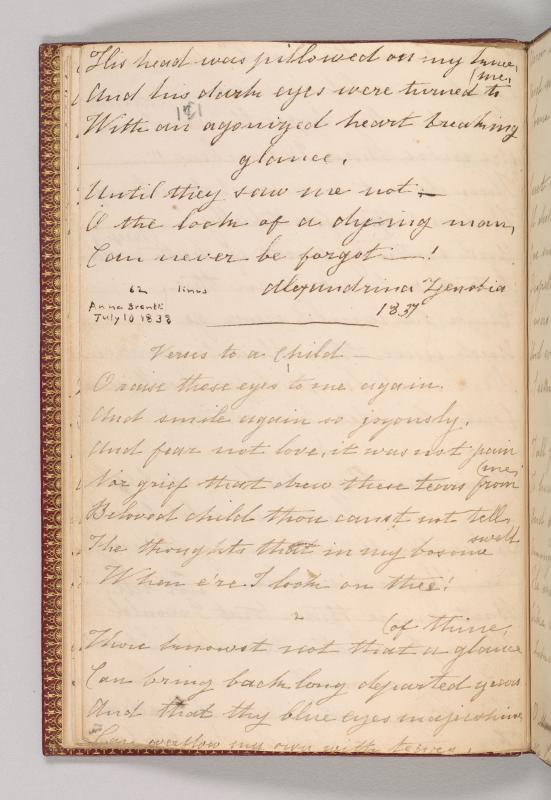 His head was pillowed on my knee,
And his dark eyes were turned to (me,
With an agonized heart breaking
glance,
Until they saw me not —
O the look of a dying man,
Can never be forgot — !
Alexandrina Zenobia
1837
62 lines
Anne Brontë
July 10 1838
Verses to a Child —
1
O raise those eyes to me again
And smile again so joyously,
And fear not love, it was not pain
Nor grief that drew these tears from (me,
Beloved child thou canst not tell,
The thoughts that in my bosome swell
When e're I look on thee!
2
Thou knowst not that a glance (of thine,
Can bring back long departed years
And that thy blue eyes magic shine
Can overflow my own with tears,